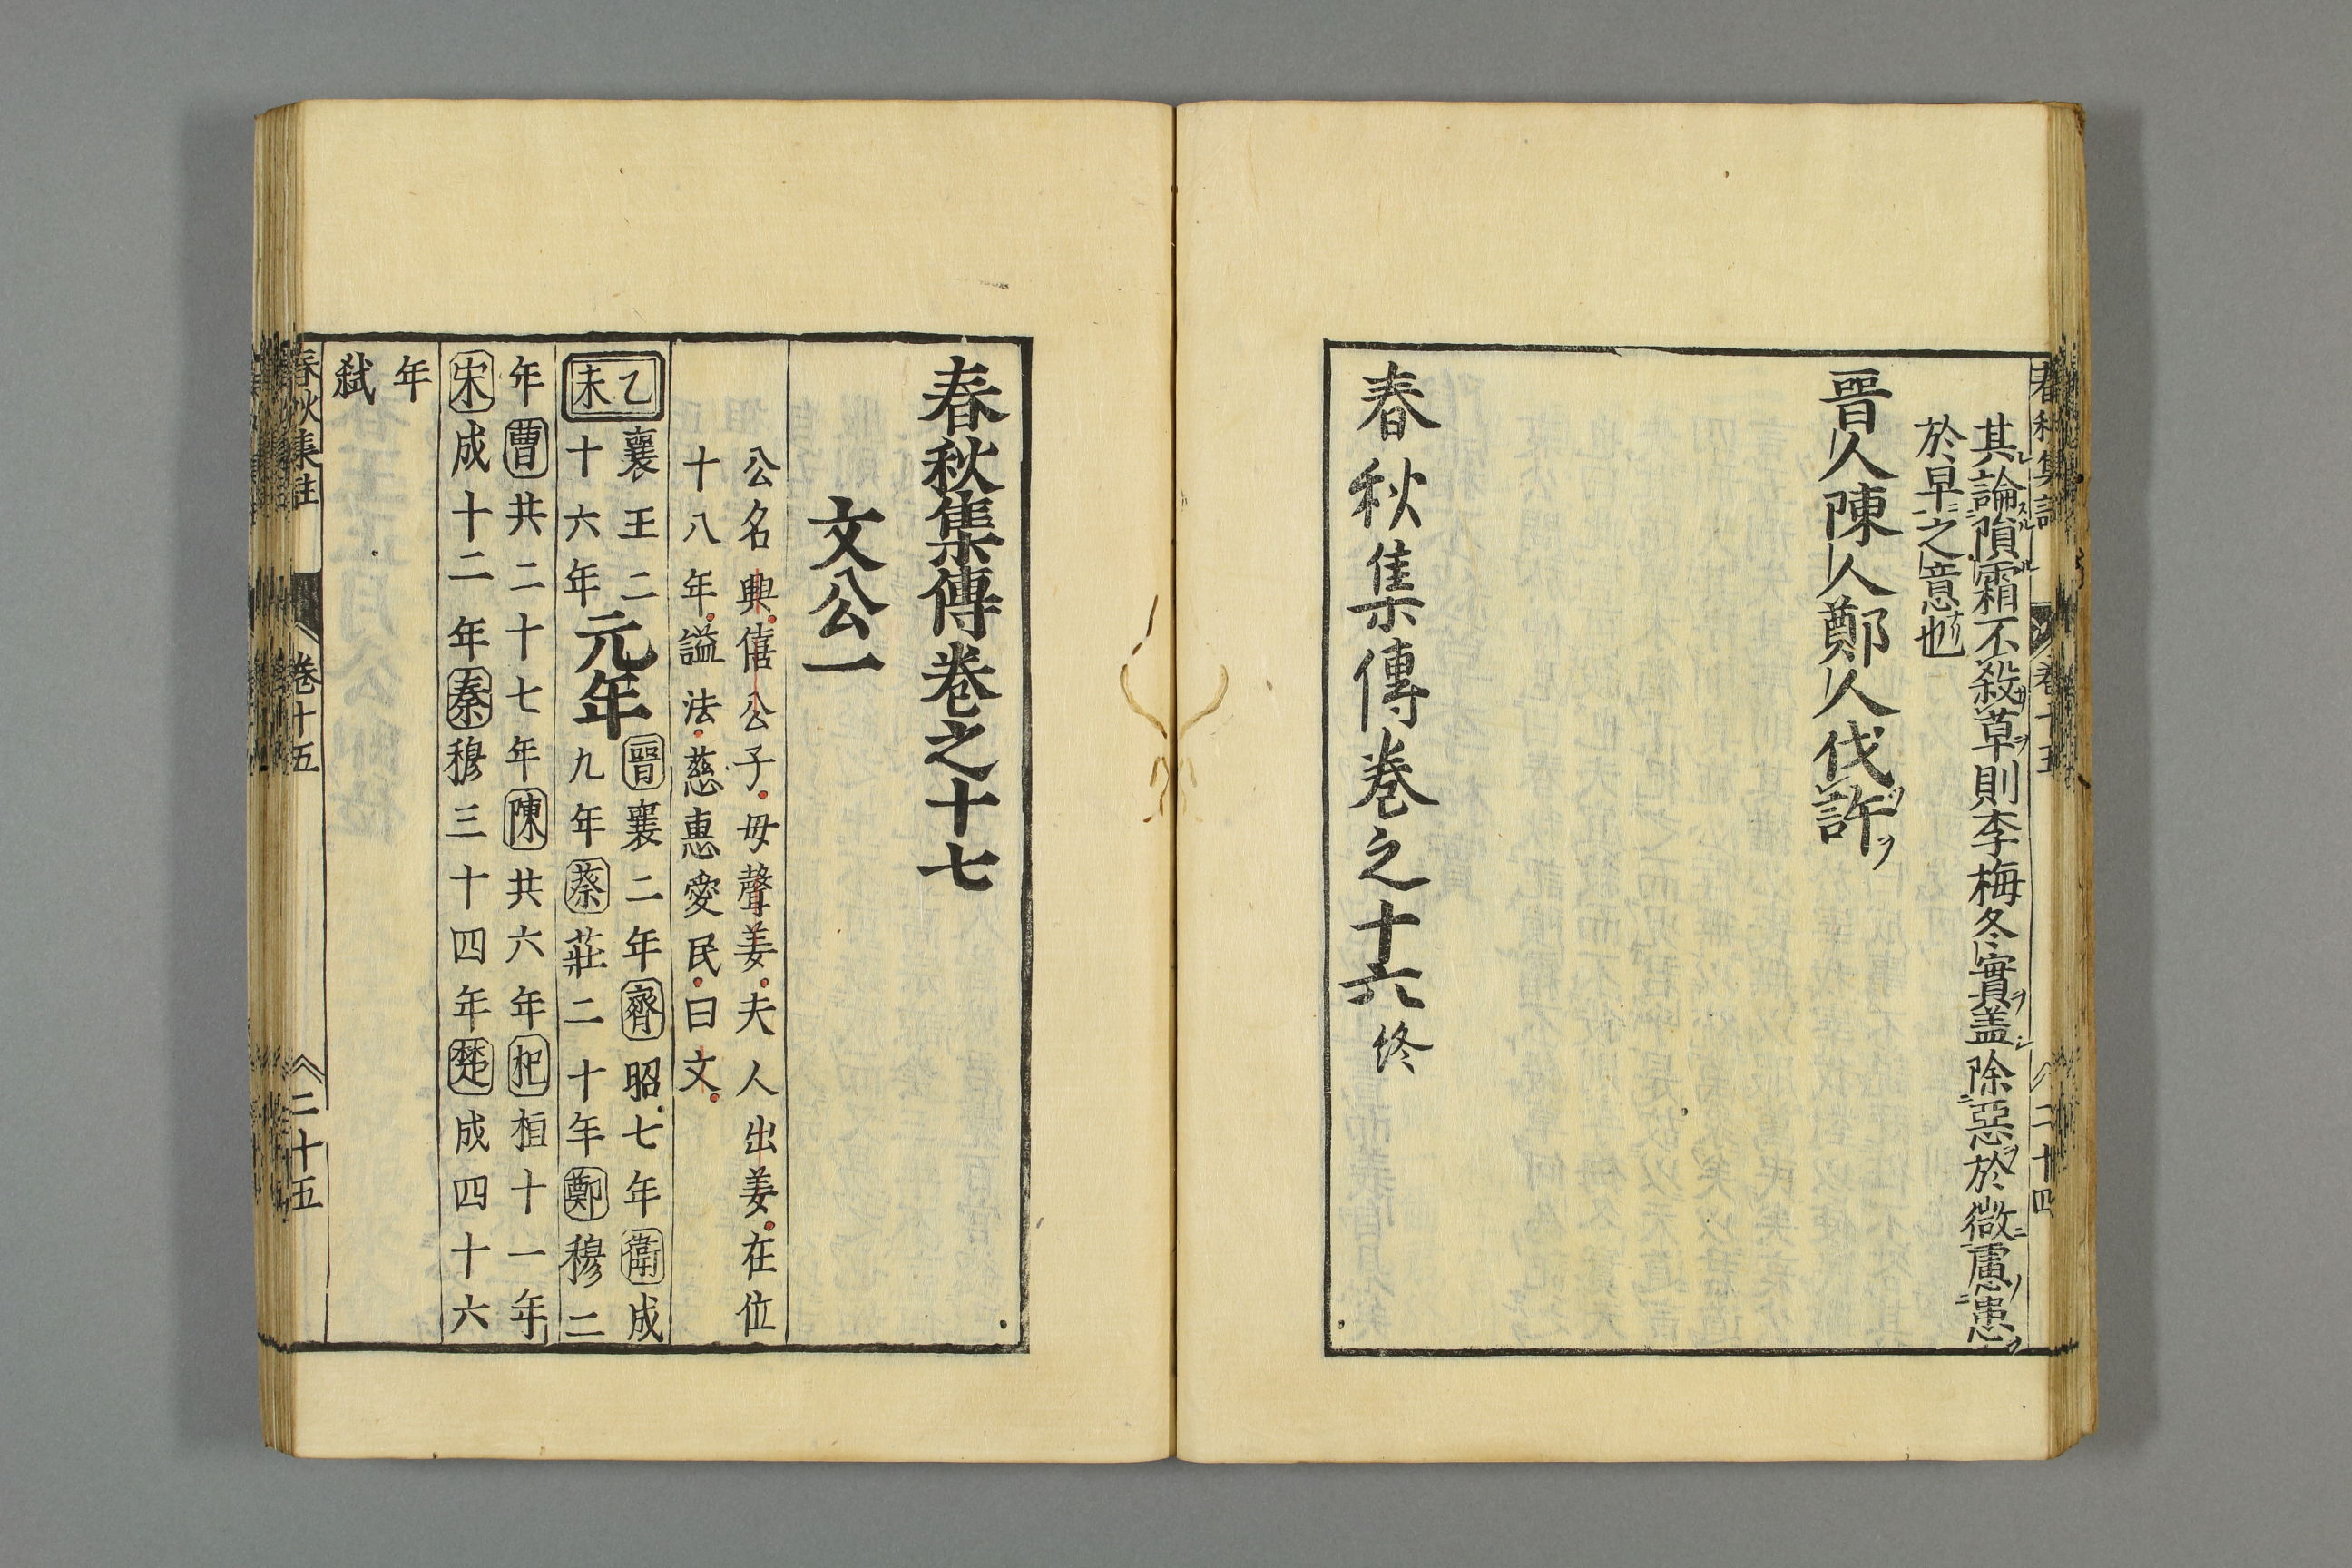 其論隕霜不殺草則李梅冬實盖除惡於微慮患
於早之意也
晉人陳人鄭人伐許
春秋集傳巻之十六終
巻十五
二十四
春秋集傳巻之十七
文公一
公名興僖公子母聲姜夫人出姜在位
十八年謚法慈惠愛民曰文
乙未
襄王二十六年
元年
晉襄二年齊昭七年衛成
九年蔡莊二十年鄭穆二
年曹共二十七年陳共六年杞桓十一年
宋成十二年秦穆三十四年楚成四十六
年
弑
春秋集註
巻十五
二十五